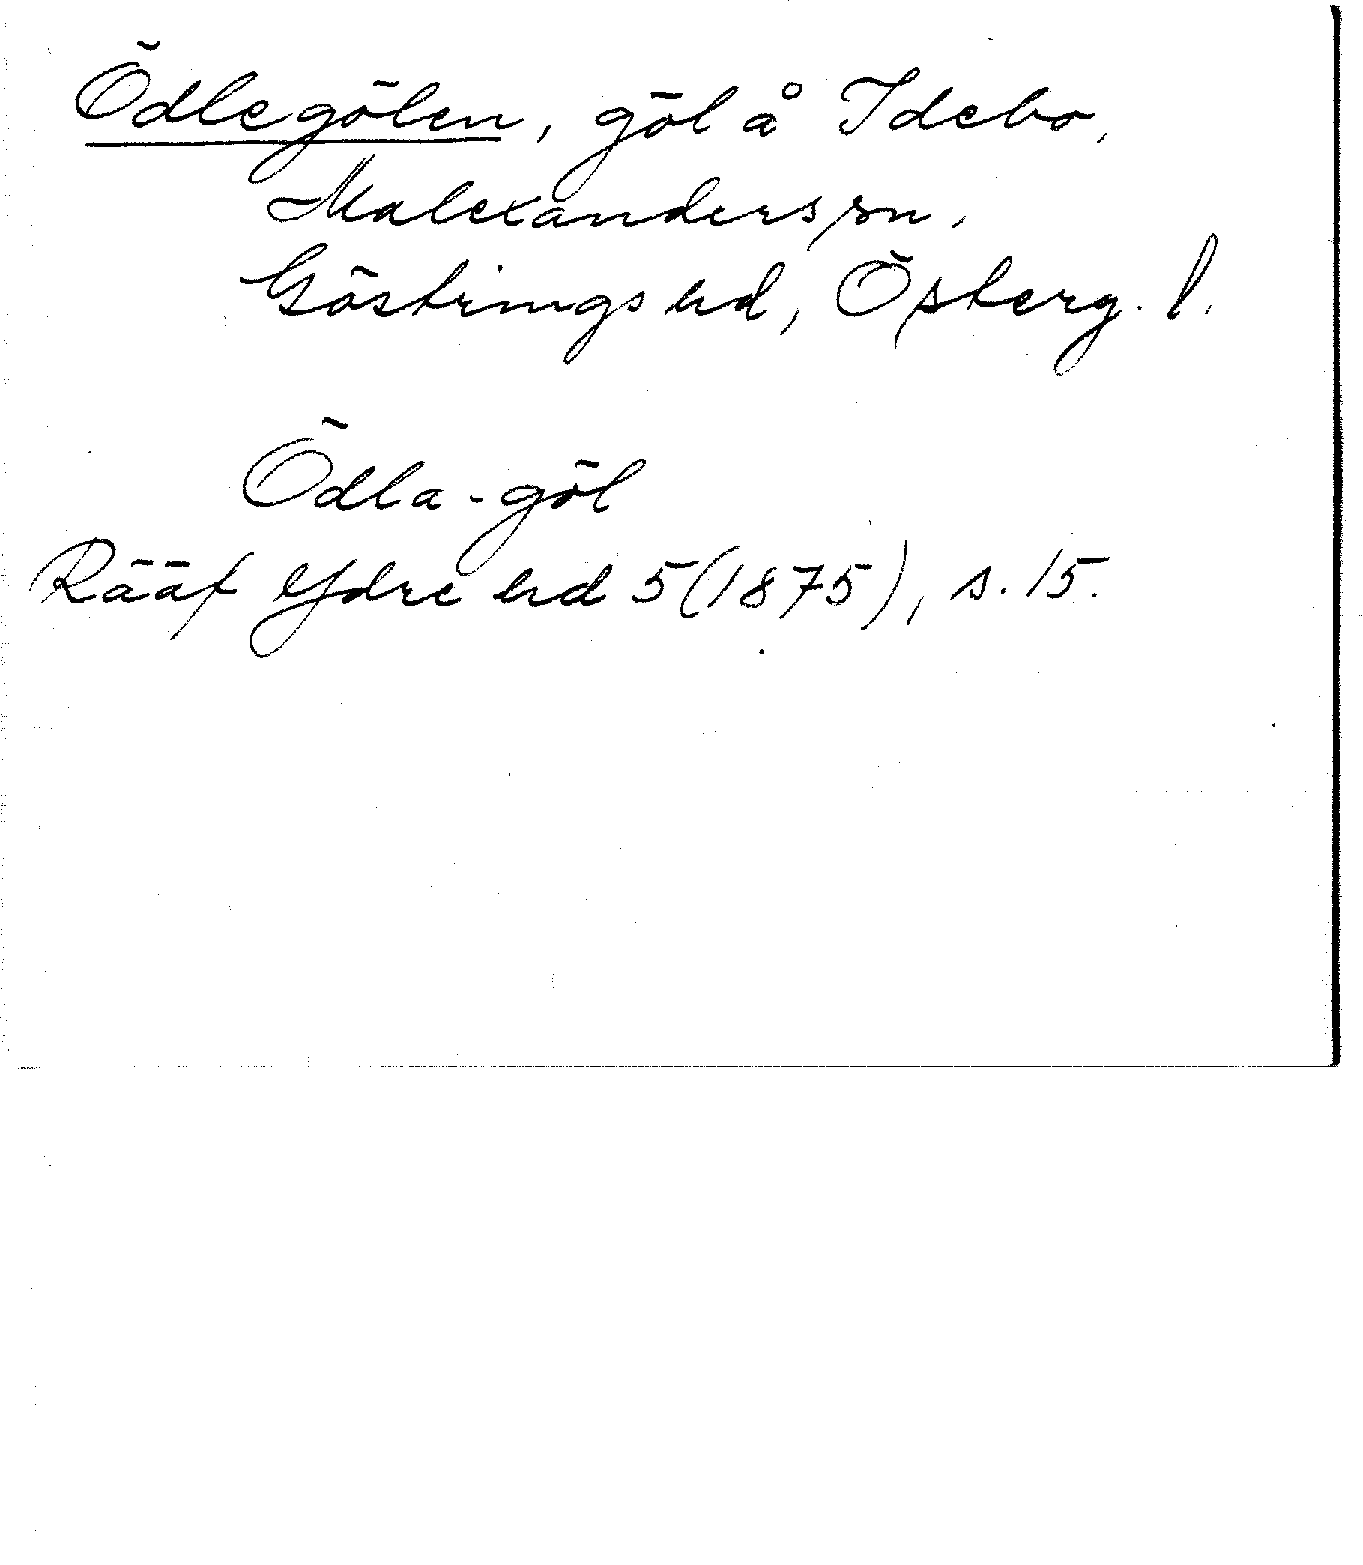 Ödlegölen, göl å Idebo,
Malexanders sn,
Göstrings hd, Österg. l.
Ödla-göl
Rääf Ydre hd 5 (1875), s. 15.